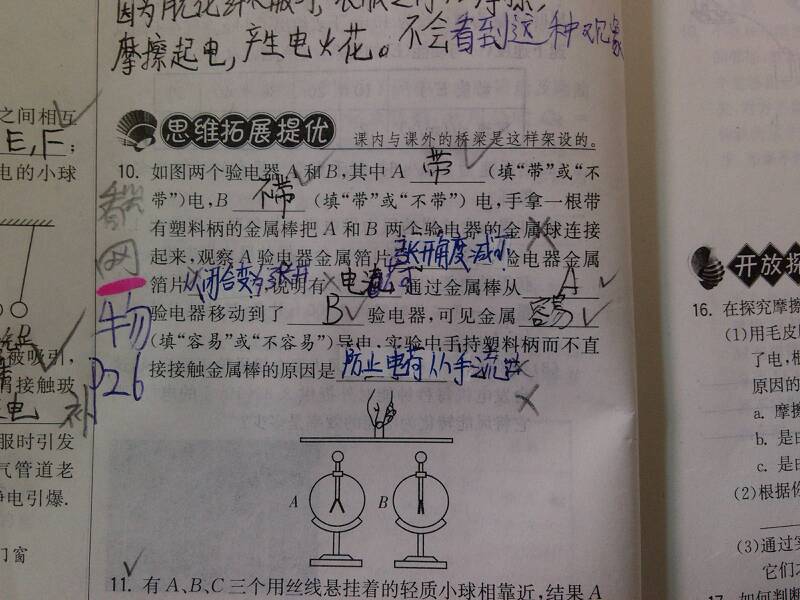 摩擦起电,产生电火花。不会看到这种现象
之间相互
E,F;
电的小球
思维拓展提优 课内与课外的桥梁是这样架设的。
10. 如图两个验电器A和B,其中A 带 (填“带”或“不
带”)电,B 不带 (填“带”或“不带”)电,手拿一根带
有塑料柄的金属棒把A和B两个验电器的金属球连接
起来,观察A验电器金属箔片 张开角度减小 验电器金属
箔片 从闭合变为张开 说明有 电 通过金属棒从 A
验电器移动到了 B 验电器,可见金属 容易
(填“容易”或“不容易”)导电,实验中手持塑料柄而不直
接接触金属棒的原因是 防止电荷从手流
物
P26
补
被吸引,
有接触玻
电
服时引发
气管道老
静电引爆.
门窗
A B
11. 有A、B、C三个用丝线悬挂着的轻质小球相靠近,结果A
开放探
16. 在探究摩擦
(1)用毛皮
了电,根
原因的
a. 摩擦
b. 是由
c. 是由
(2)根据你
(3)通过实
它们才
17. 如何判断